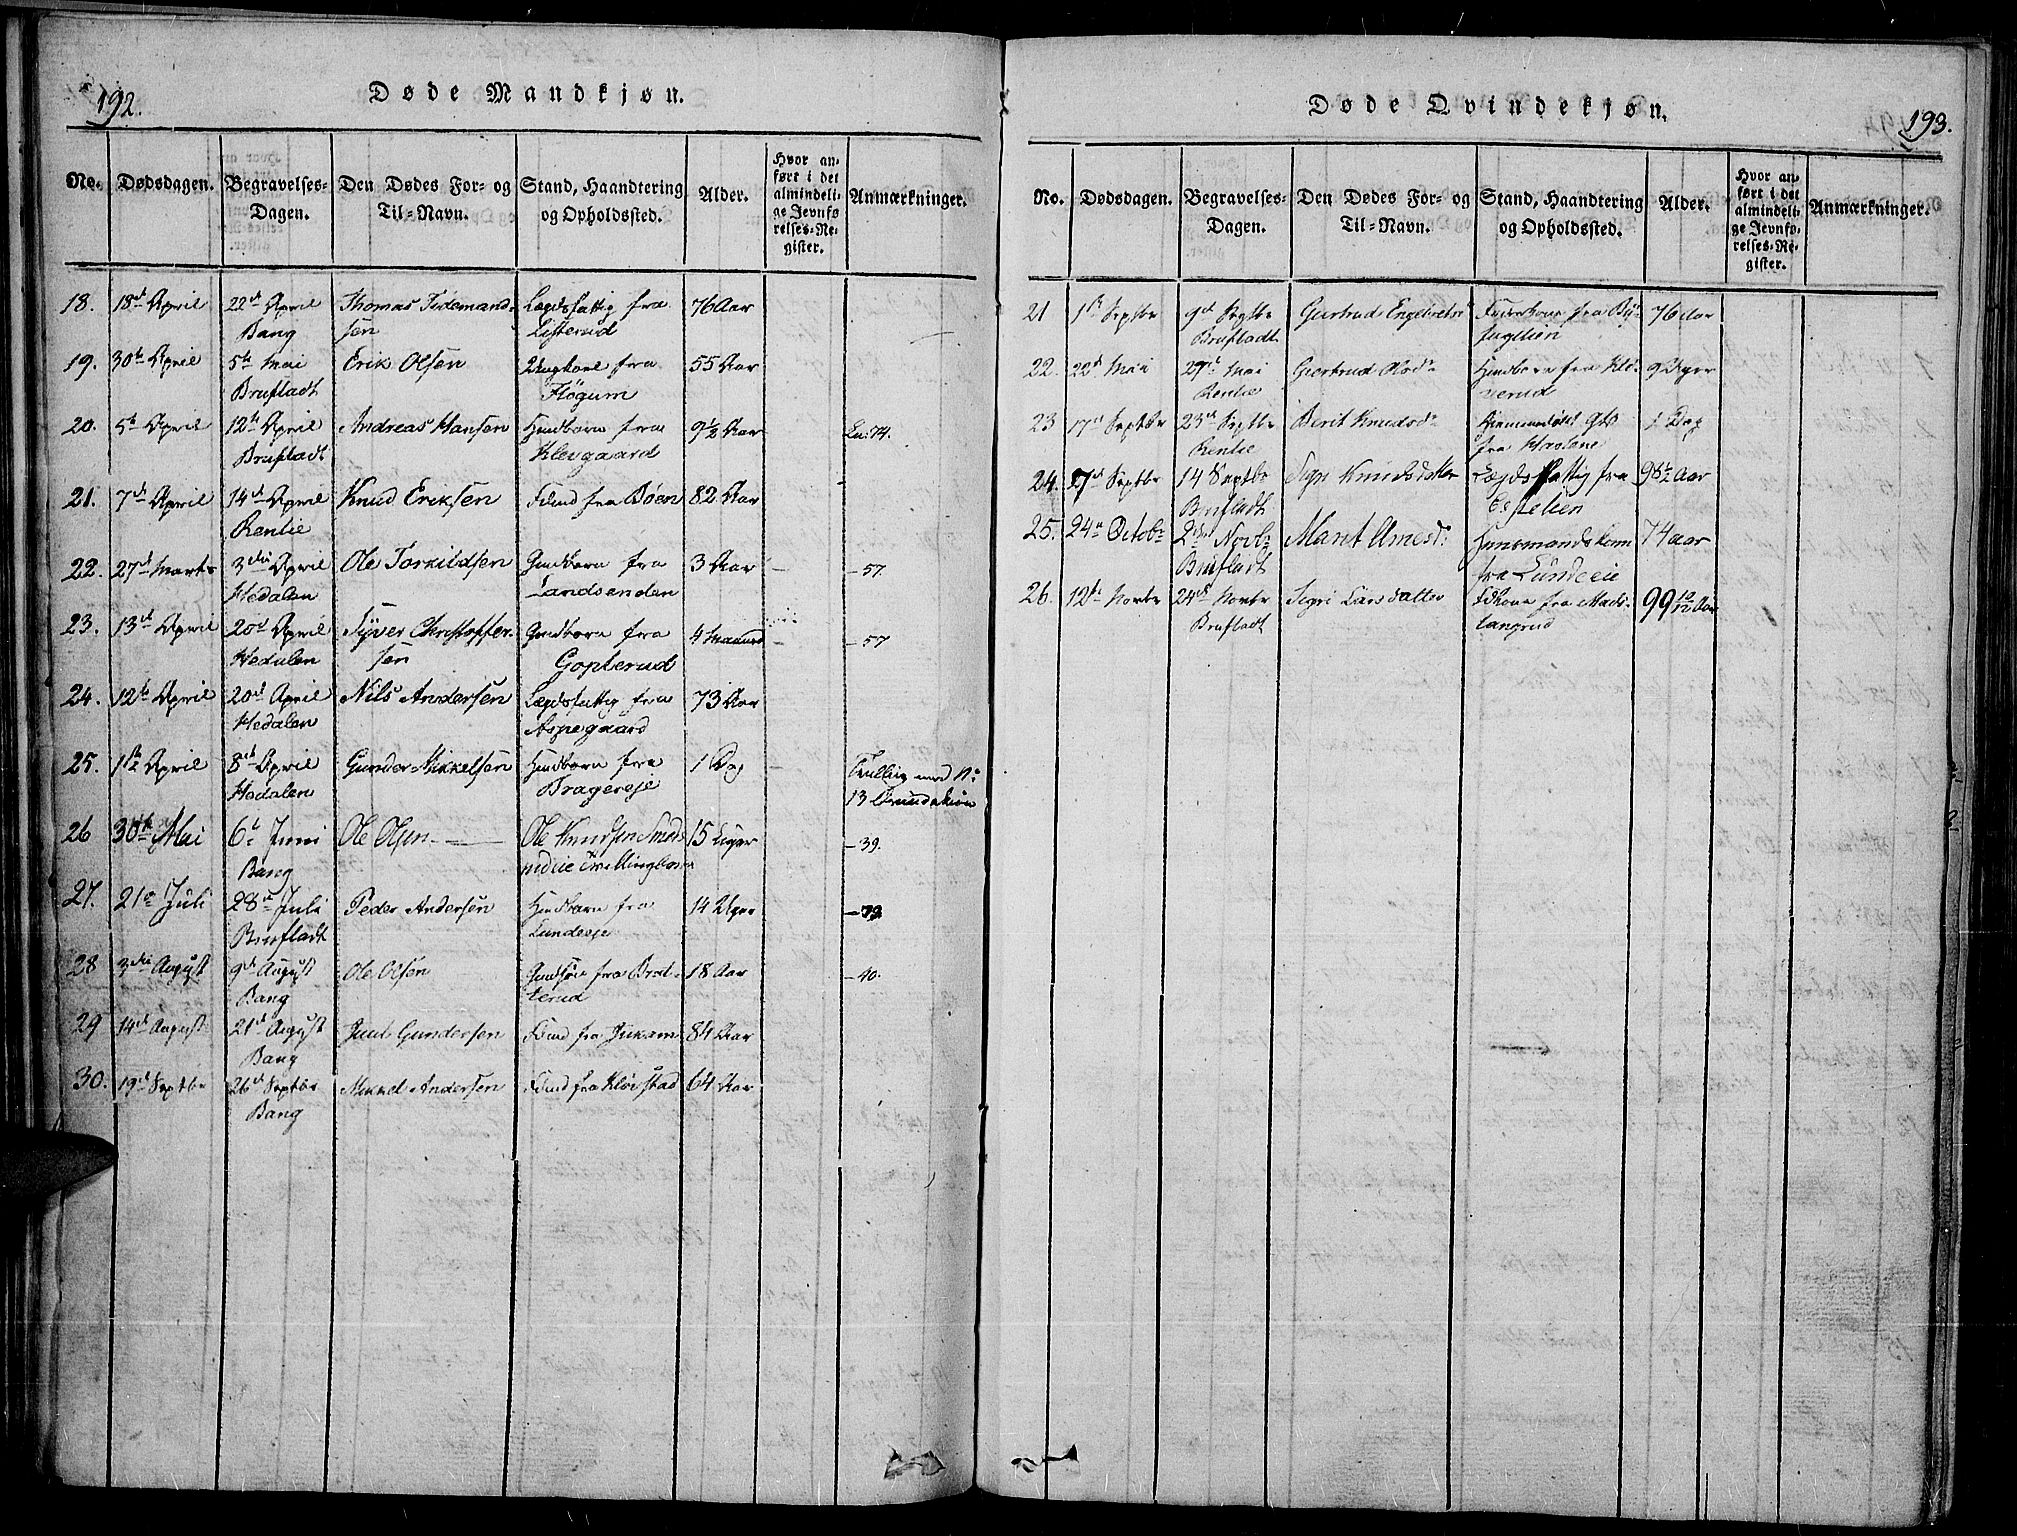 192.
Døde Mandkjøn.
No. Dødsdagen. Begravelses-Dagen. Den Dødes For- og Til-Navn. Stand, Haandtering og Opholdssted. Alder. Hvor anført i det almindelige Jevnførelses-Register. Anmærkninger.
18. 18de April 22de April Thomas Tidemand- Lægdsfattig fra 76 Aar
Bang sen Listerud
19. 30te April 5te Mai Erik Olsen fra 55 Aar
Brufladt Fløgum
20. 5te April 12te April Andreas Hansen Huusbarn fra 9½ Aar 74.
Brufladt Klevgaard
21. 7de April 14de April Knud Eriksen fra Bøen 82 Aar
Renlie
22. 27de Marts 3die April Ole Torkildsen Gaardbarn fra 3 Aar — —57.
Hedalen Landsenden
23. 13de April 20de April Syver Christoffer- Gaardbarn fra 4 Maaneder — —57
Hedalen sen Gopterud
24. 12te April 20de April Nils Andersen Lægdsfattig fra 73 Aar
Hedalen Aspegaard
25. 1ste April 8de April Gunder Mikkelsen Huusbarn fra 1 Dag — Tvilling med No
Hedalen Brageneje 13 Qvindekiøn
26 30te Mai 6te Juni Ole Olsen — Ole Knudsen 15 Uger —39.
Bang Tvillingbarn
27. 21de Juli 28de Juli Peder Andersen Huusbarn fra 14 Uger —79.
Brufladt Lundeeje
28 3die August 9de August Ole Olsen fra Brat- 18 Aar —40.
Bang terud
29 14de August 21de August Juul Gundersen fra Jukam 84 Aar
Bang
30. 19de Septbr 26de Septbr Mikkel Andersen fra Kløvstad 64 Aar
Bang
193.
Døde Qvindekjøn.
No. Dødsdagen. Begravelses-Dagen. Den Dødes For- og Til-Navn. Stand, Haandtering og Opholdssted. Alder. Hvor anført i det almindelige Jevnførelses-Register. Anmærkninger.
21 1ste Septbr 9de Septbr Gertrud fra 76 Aar
Brufladt fugllien
22. 22de Mai 29de Mai Gertrud Huusbarn fra Klø- 9 Uger
Renlie verud
23 17de Septbr 23de Septbr Berit Knudsd. 1 Dag
Renlie fra
24. 7de Septbr 14 Septbr Sigri Knudsdatter Lægdsfattig fra 98½ Aar
Brufladt Espelien
25. 24de Octobr 2den Novbr Marit 74 aar
Brufladt fra Lundeeie
26. 12te Novbr 24de Novbr Sigri Larsdatter fra Mads- 99 10/12 Aar
Brufladt langrud